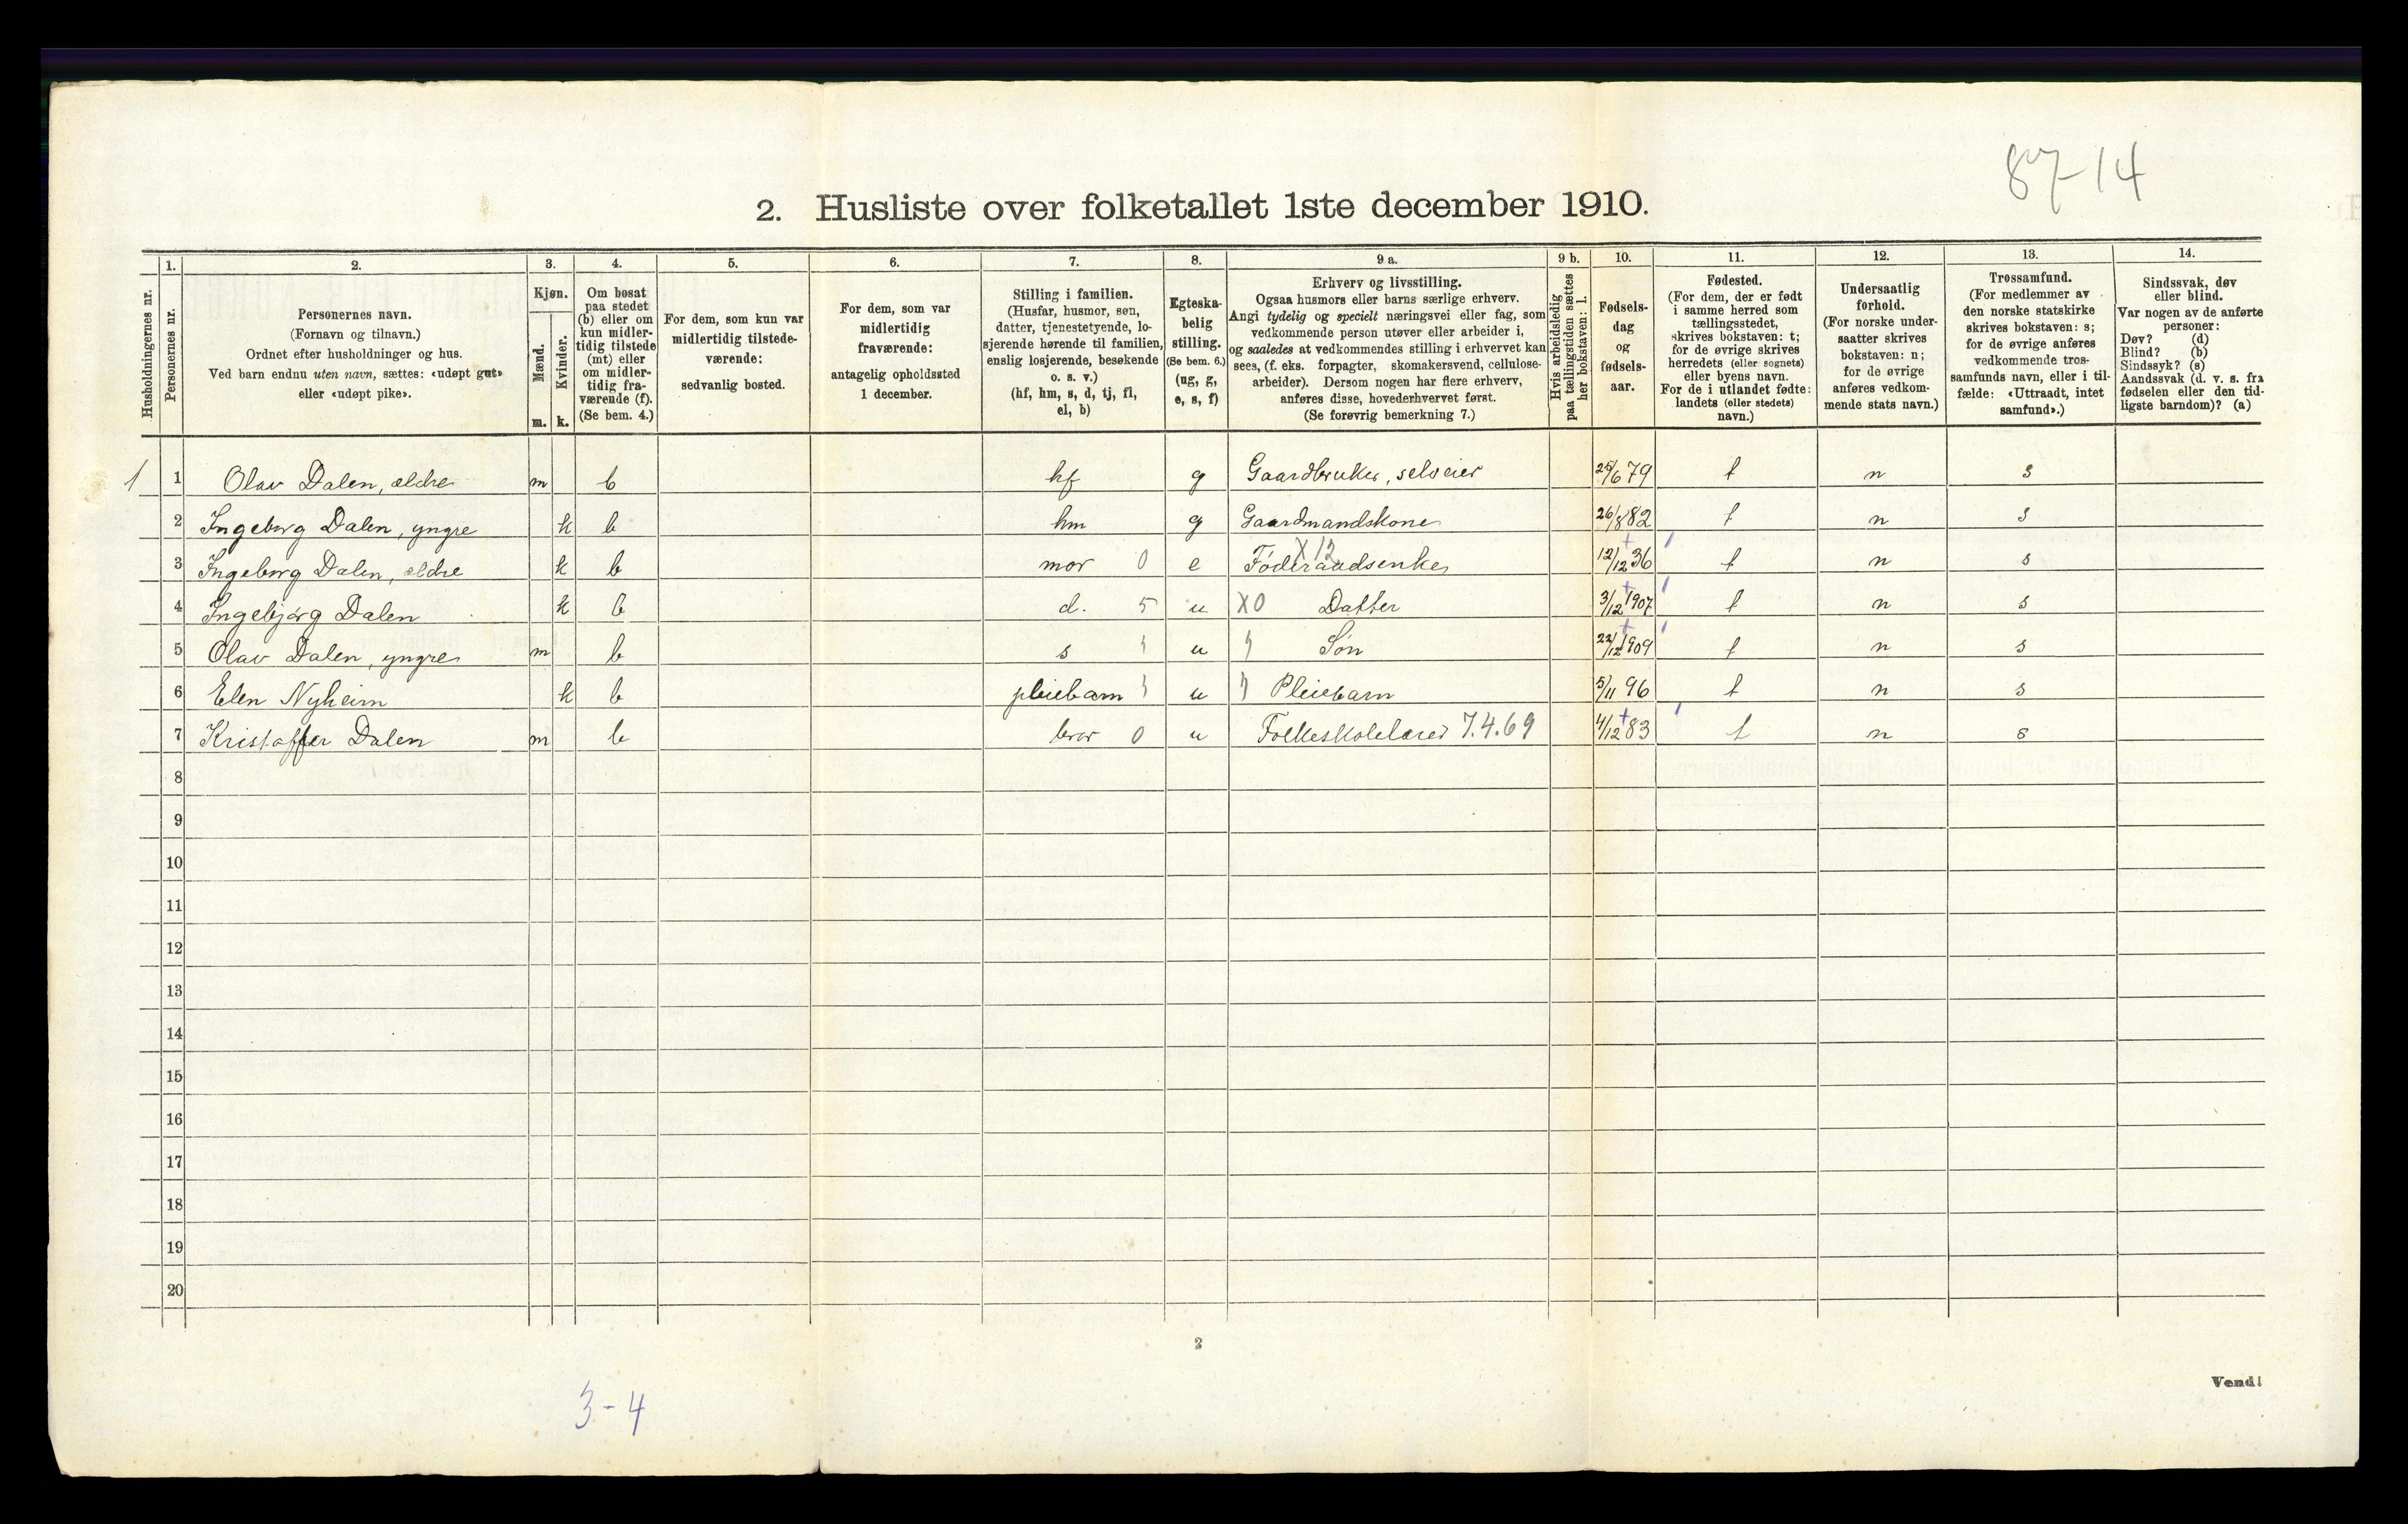 87-14
2. Husliste over folketallet 1ste december 1910.
Husholdningernes nr.
1. Personernes nr.
2. Personernes navn.
(Fornavn og tilnavn.)
Ordnet efter husholdninger og hus.
Ved barn endnu uten navn, sættes: «udøpt gut»
eller «udøpt pike».
3. Kjøn.
Mænd. m.
Kvinder. k.
4. Om bosat
paa stedet
(b) eller om
kun midler-
tidig tilstede
(mt) eller
om midler-
tidig fra-
værende (f).
(Se bem. 4.)
5. For dem, som kun var
midlertidig tilstede-
værende:
sedvanlig bosted.
6. For dem, som var
midlertidig
fraværende:
antagelig opholdssted
1 december.
7. Stilling i familien.
(Husfar, husmor, søn,
datter, tjenestetyende, lo-
sjerende hørende til familien,
enslig losjerende, besøkende
o. s. v.)
(hf, hm, s, d, tj, fl,
el, b)
8. Egteska-
belig
stilling.
(Se bem. 6.)
(ug, g,
e, s, f)
9 a. Erhverv og livsstilling.
Ogsaa husmors eller barns særlige erhverv.
Angi tydelig og specielt næringsvei eller fag, som
vedkommende person utøver eller arbeider i,
og saaledes at vedkommendes stilling i erhvervet kan
sees, (f. eks. forpagter, skomakersvend, cellulose-
arbeider). Dersom nogen har flere erhverv,
anføres disse, hovederhvervet først.
(Se forøvrig bemerkning 7.)
9 b. Hvis arbeidsledig
paa tællingstiden sættes
her bokstaven: l.
10. Fødsels-
dag
og
fødsels-
aar.
11. Fødested.
(For dem, der er født
i samme herred som
tællingsstedet,
skrives bokstaven: t;
for de øvrige skrives
herredets (eller sognets)
eller byens navn.
For de i utlandet fødte:
landets (eller stedets)
navn.)
12. Undersaatlig
forhold.
(For norske under-
saatter skrives
bokstaven: n;
for de øvrige
anføres vedkom-
mende stats navn.)
13. Trossamfund.
(For medlemmer av
den norske statskirke
skrives bokstaven: s;
for de øvrige anføres
vedkommende tros-
samfunds navn, eller i til-
fælde: «Uttraadt, intet
samfund».)
14. Sindssvak, døv
eller blind.
Var nogen av de anførte
personer:
Døv? (d)
Blind? (b)
Sindssyk? (s)
Aandssvak (d. v. s. fra
fødselen eller den tid-
ligste barndom)? (a)
1 1 Olav Dalen, ældre m b hf g Gaardbruker, selveier 25/6 79 t n s
2 Ingeborg Dalen, yngre k b hm g Gaardmandskone 26/8 82 t n s
3 Ingeborg Dalen, ældre k b mor 0 e Føderaadsenke X 12 12/12 36 t n s
4 Ingebjørg Dalen k b d. 5 u X0 Datter 3/12 1907 t n s
5 Olav Dalen, yngre m b s u Søn 22/12 1909 t n s
6 Elen Nyheim k b pleiebarn u Pleiebarn 5/11 96 t n s
7 Kristoffer Dalen m b bror 0 u Folkeskolelærer 7.4.69 4/12 83 t n s
8
9
10
11
12
13
14
15
16
17
18
19
20
2
Vend!
3-4